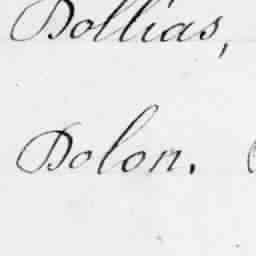 Dollias,
Dolon.